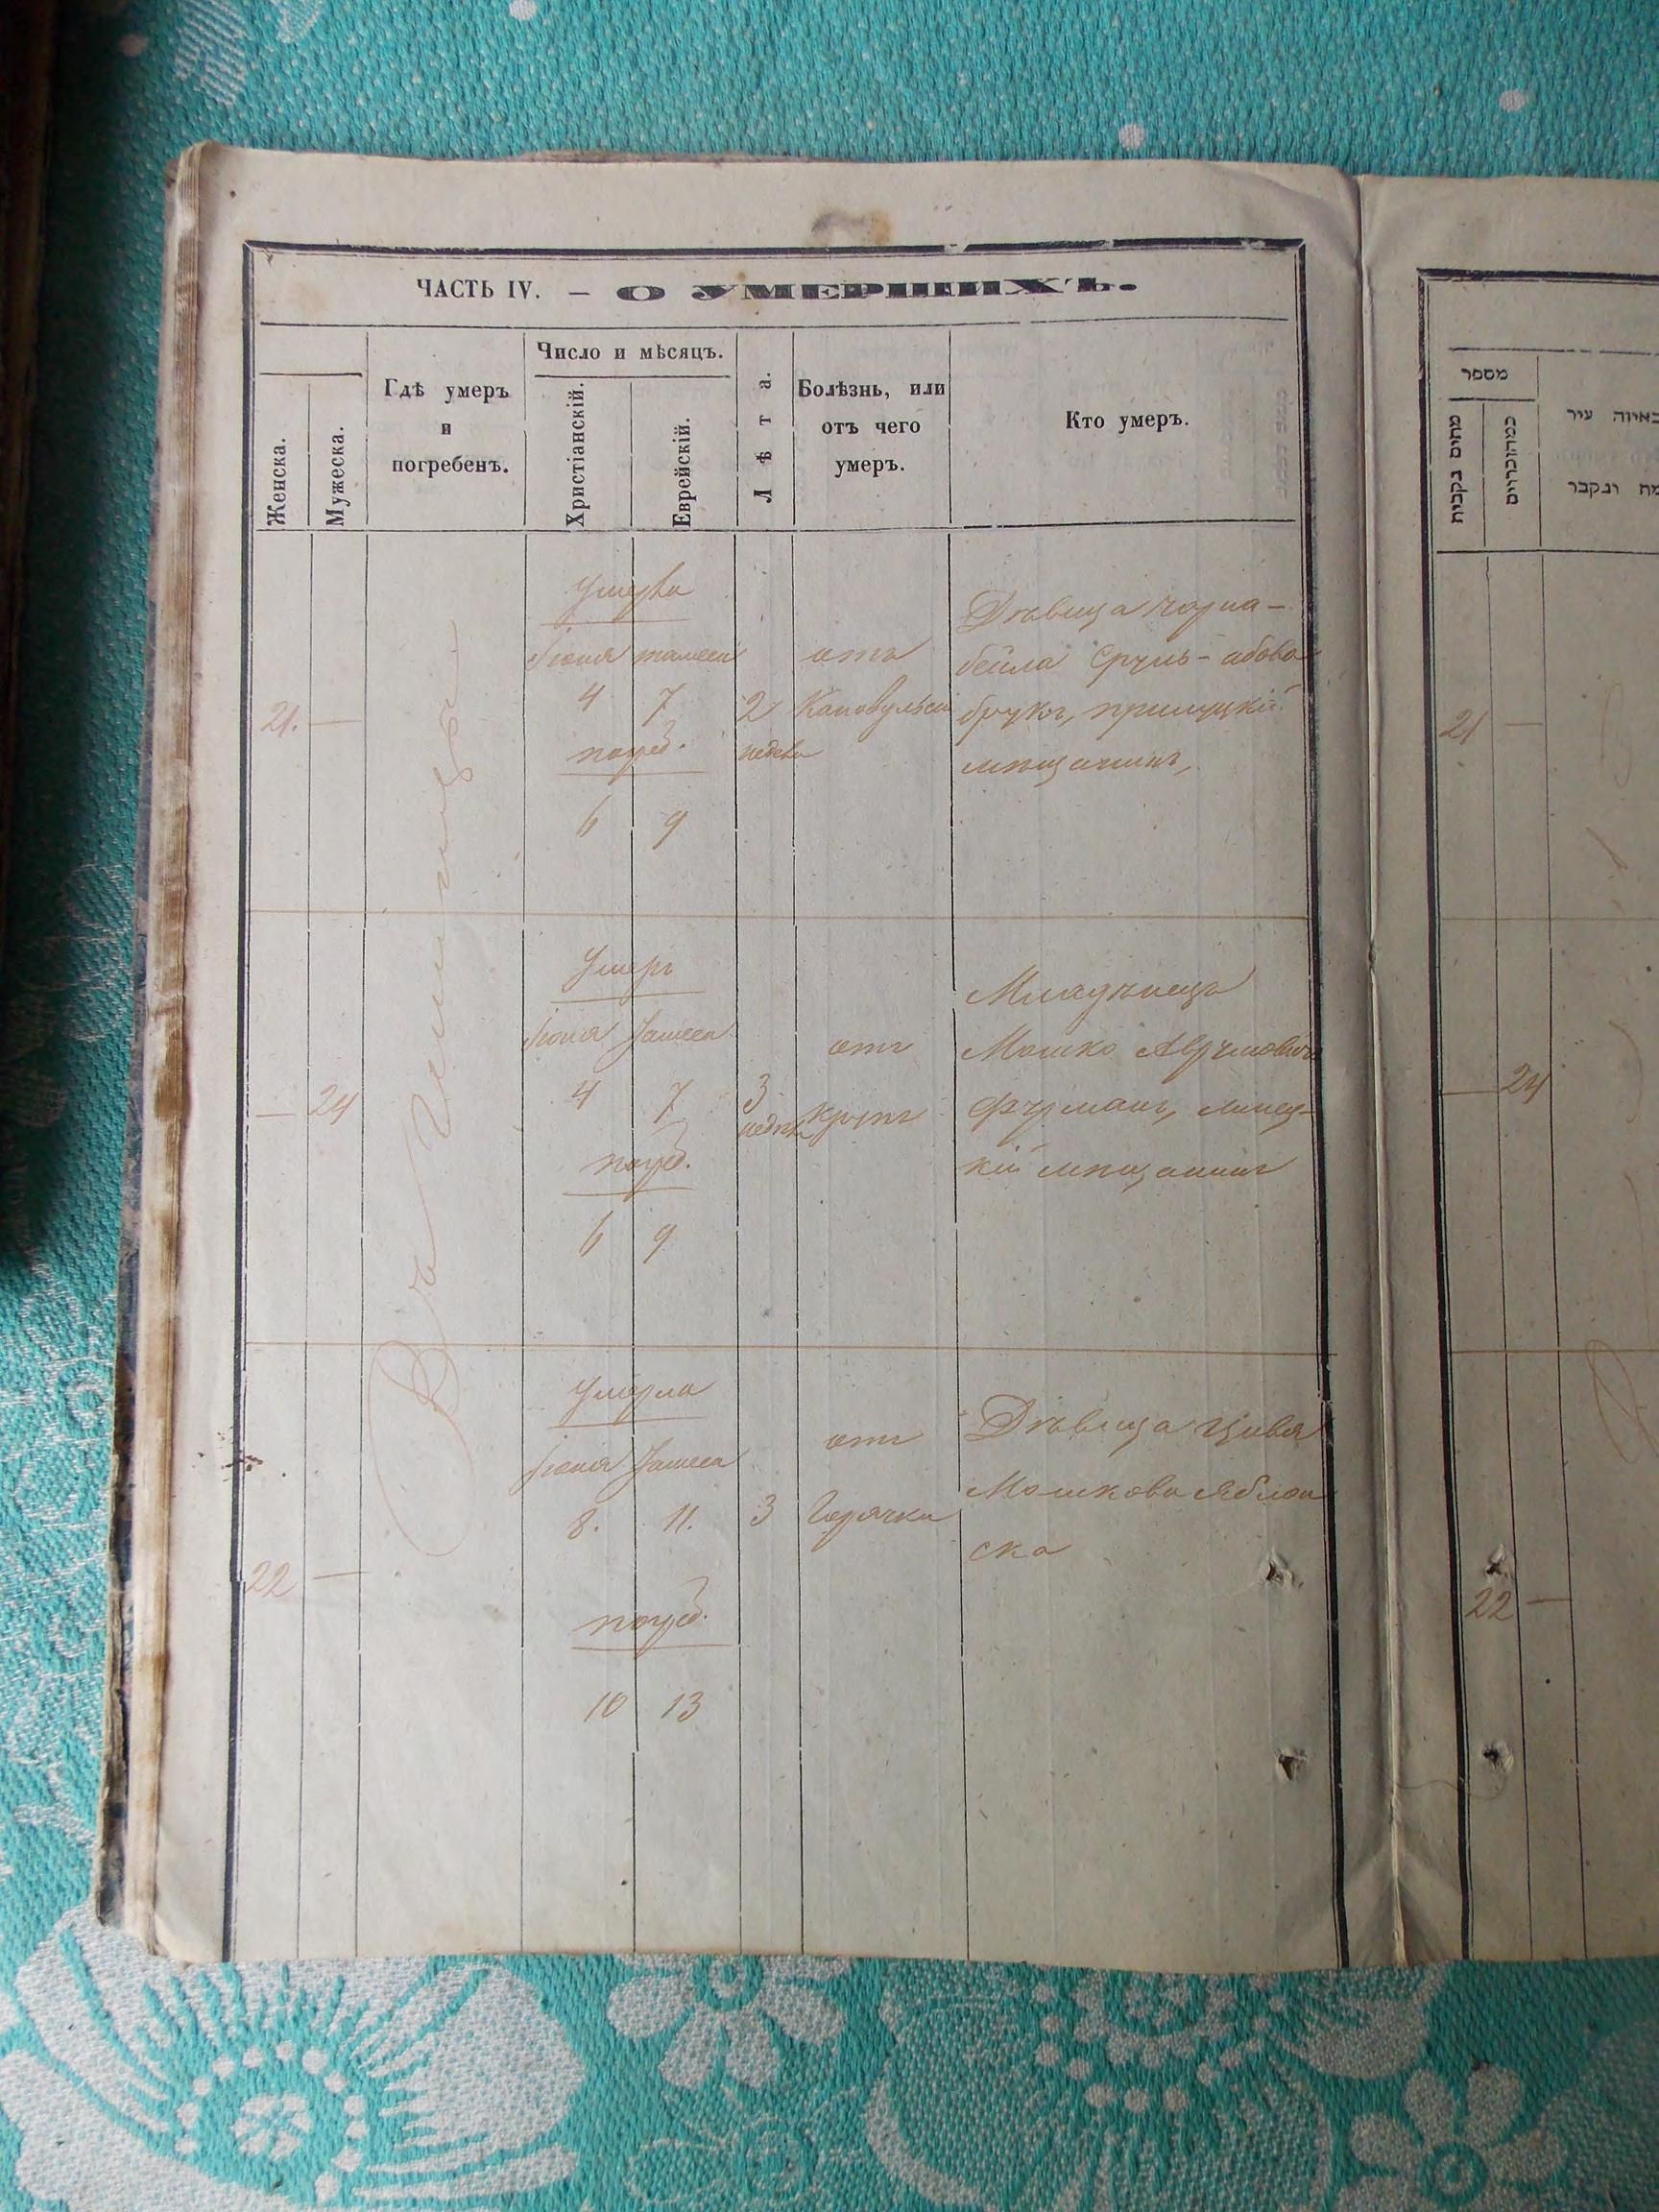 ЧАСТЬ IV. — О УМЕРШИХЪ.
Женска.
Мужеска.
Гдѣ умеръ
и
погребенъ.
Число и мѣсяцъ.
Христіанскій.
Еврейскій.
Лѣта.
Болѣзнь, или
отъ чего
умеръ.
Кто умеръ.
21. —
Умерла
Іюня тамеса
4 7
погреб.
6 9
2
недели
отъ
Дѣвица Чорна-
бейла Сруль-абова
брукъ, прилуцкій
мѣщанинъ,
— 24
Умеръ
Іюня Тамеса
4 7
погреб.
6 9
3
недѣли
отъ
крупъ
Младенецъ
Мошко Аврумовичъ
Фурманъ, липец-
кій мѣщанинъ
22 —
Умерла
Іюня Тамеса
8. 11.
погреб.
10 13
3
отъ
Горячки
Дѣвица Цивя
Мошкова Яблон
ска
מספר
מתים נקבית
באיזה עיר
מת ונקבר
21 —
— 24
22 —